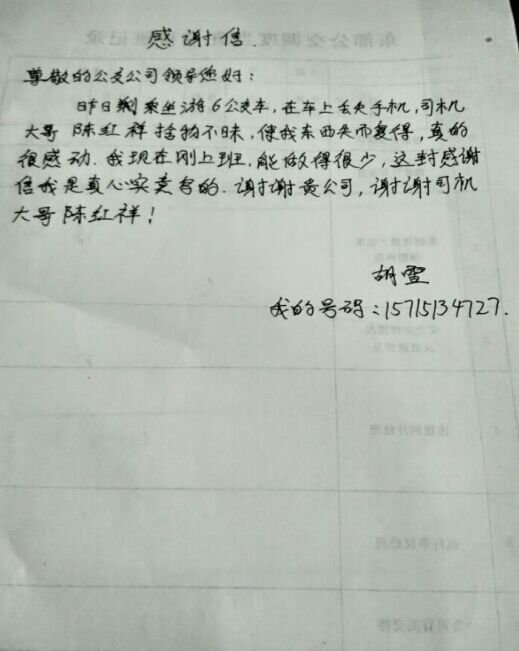 感谢信.
尊敬的公交公司领导您好:
昨日我乘坐游6公交车,在车上丢失手机,司机
大哥 陈红祥 拾物不昧,使我东西失而复得,真的
很感动.我现在刚上班,能做得很少,这封感谢
信我是真心实意写的.谢谢贵公司,谢谢司机
大哥陈红祥!
胡雪
我的号码:15715134727.